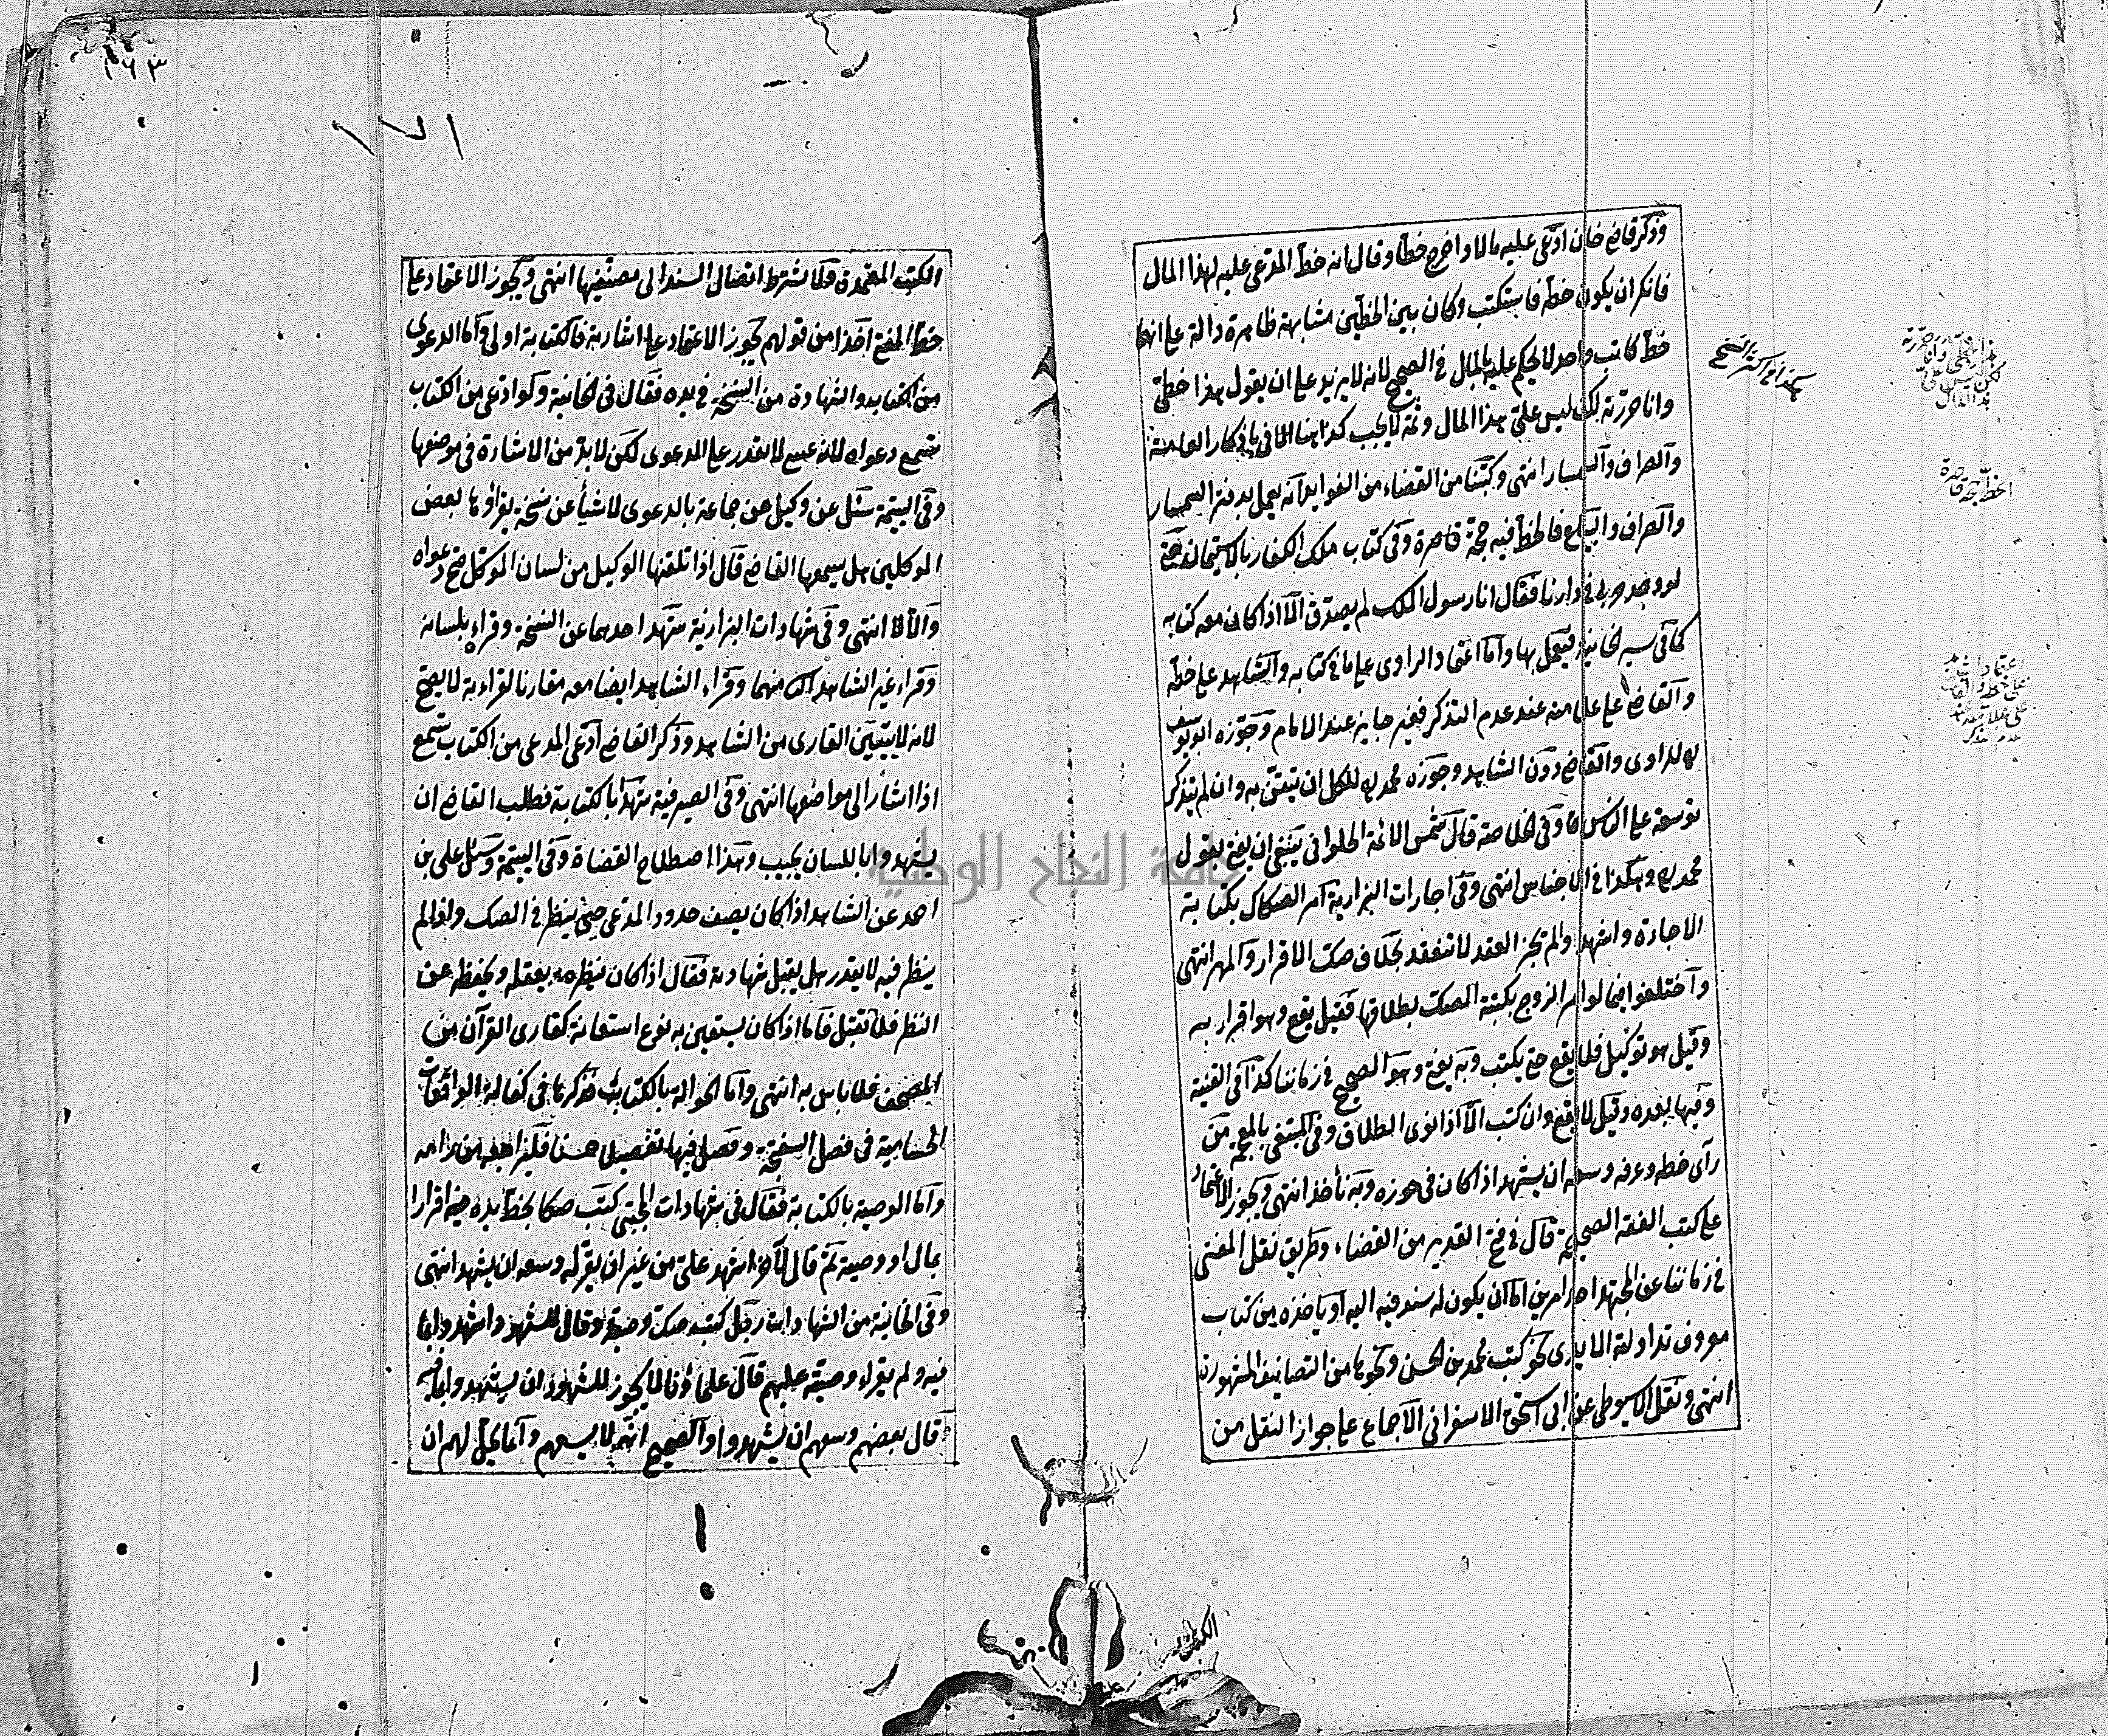 وذكر قاضي خان ادعى عليه مالا واخرج خطا وقال انه خط المدعى عليه لهذا المال
فانكر ان يكون خطه فاستكتب وكان بين الخطين مشابهة ظاهرة دالة على انهما
خط كاتب واحد لا يحكم عليه بالمال في الصحيح لانه لا يزيد على ان يقول هذا خطي
وانا حررته لكن ليس علي هذا المال وثمة لا يجب كذا هنا الا في يادكار الباعة
والصراف والسمسار انتهى وكتبنا من القضاء من الفوايد انه يعمل بدفتر السمسار
والصراف والبياع فالخط فيه حجة قاصرة وفي كتاب ملك الكفار بالاستيمان حجة
لو وجد حربي في دارنا فقال انا رسول الملك لم يصدق الا اذا كان معه كتابه
كما في سير الخانية فيعمل بها واما اعتماد الراوي على ما في كتابه والشاهد على خطه
والقاضي على علامته عند عدم التذكر فغير جايز عند الامام وجوزه ابو يوسف
رح للراوي والقاضي دون الشاهد وجوزه محمد رح للكل ان تيقن به وان لم يتذكر
توسعة على الناس وفي الخلاصة قال شمس الائمة الحلواني ينبغي ان يفتي بقول
محمد رح وهكذا في الاجناس انتهى وفي اجارات البزازية امر الصكاك بكتابة
الاجارة واشهد ولم يجز العقد لا تنعقد بخلاف صك الاقرار والمهر انتهى
واختلفوا فيما لو امر الزوج بكتبة الصك بطلاقها فقيل يقع وهو اقرار به
وقيل هو توكيل فلا يقع حتى يكتب وبه يفتى وهو الصحيح في زماننا كذا في القنية
وفيها بعده وقيل لا يقع وان كتب الا اذا نوى الطلاق وفي المبتغى بالمعجمة من
رأى خطه وعرفه وسعه ان يشهد اذا كان في حوزه وبه نأخذ انتهى ويجوز الاعتماد
على كتب الفقه الصحيحة قال في فتح القدير من القضاء وطريق نقل المفتى
في زماننا عن المجتهد احد امرين اما ان يكون له سند فيه اليه او ياخذه من كتاب
معروف تداولته الايدي نحو كتب محمد بن الحسن ونحوها من التصانيف المشهورة
انتهى ونقل السيوطي عن ابي اسحق الاسفرائني الاجماع على جواز النقل من
هكذا في اكثر النسخ
الخط حجة قاصرة
١٦٣
١٧١
الكتب المعتمدة ولا يشترط اتصال السند الى مصنفيها انتهى ويجوز الاعتماد على
خط المفتي اخذا من قولهم يجوز الاعتماد على اشارته فالكتابة اولى واما الدعوى
من الكتاب والشهادة من النسخة في يده فقال في الخانية ولو ادعى من الكتاب
تسمع دعواه لانه عسى لا يقدر على الدعوى لكن لا بد من الاشارة في موضعها
وفي اليتيمة سئل عن وكيل عن جماعة بالدعوى لاشيأ عن نسخة يقرأوها بعض
الموكلين هل يسمعها القاضي قال اذا تلقنها الوكيل من لسان الموكل صح دعواه
والا لا انتهى وفي شهادات البزازية شهد احدهما عن النسخة وقراه بلسانه
وقراء غير الشاهد الثاني منهما وقراء الشاهد ايضا معه مقارنا لقراءته لا يصح
لانه لا يتبين القاري من الشاهد وذكر القاضي ادعى المدعي من الكتاب تسمع
اذا اشار الى مواضعها انتهى وفي الصيرفية شهدا بالكتابة فطلب القاضي ان
يشهدوا باللسان يجيب وهذا اصطلاح القضاة وفي اليتيمة وسئل علي بن
احمد عن الشاهد اذا كان يصف حدود المدعى حين ينظر في الصك واذا لم
ينظر فيه لا يقدر هل يقبل شهادته فقال اذا كان ينظره يعقله ويحفظه عن
النظر فلا تقبل فاما اذا كان يستعين به نوع استعانة كقاري القرآن من
المصحف فلا باس به انتهى واما الحوالة بالكتابة فذكرها في كفالة الواقعات
الحسامية في فصل السفتجة وفصل فيها تفصيلا حسنا فليراجعه من رامه
واما الوصية بالكتابة فقال في شهادات المجتبى كتب صكا بخط يده فيه اقرارا
بمال او وصية ثم قال لآخر اشهد علي من غير ان يقرله وسعه ان يشهد انتهى
وفي الخانية من الشهادات رجل كتب صك وصية وقال للشهود اشهدوا بما
فيه ولم يقراء وصيته عليهم قال علماؤنا لا يجوز للشهود ان يشهدوا بما فيه
قال بعضهم وسعهم ان يشهدوا والصحيح انهم لا يسعهم وانما يحل لهم ان
جامعة النجاح الوطنية